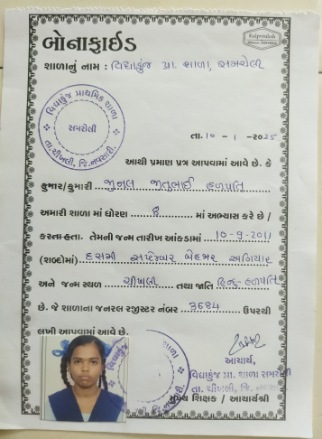 બોનાફાઈડ
શાળાનું નામ : વિદ્યાકુંજ પ્રા. શાળા, સમરોલી
વિદ્યાકુંજ પ્રાથમિક શાળા
સમરોલી
તા.ચીખલી, જિ.નવસારી.
તા. ૧૦ - ૧ - ૨૦૨૫
આથી પ્રમાણ પત્ર આપવામાં આવે છે. કે
કુમાર/કુમારી જીનલ જીતુભાઈ હળપતિ
અમારી શાળા માં ધોરણ ૮ માં અભ્યાસ કરે છે /
કરતા હતા. તેમની જન્મ તારીખ આંકડામાં ૧૦-૯-૨૦૧૧
(શબ્દોમાં) દસમી સપ્ટેમ્બર બેહજાર અગિયાર
અને જન્મ સ્થળ ચીખલી તથા જાતિ હિન્દુ-હળપતિ
છે. જે શાળાના જનરલ રજીસ્ટર નંબર ૩૬૨૪ ઉપરથી
લખી આપવામાં આવે છે.
આચાર્ય,
વિદ્યાકુંજ પ્રા. શાળા સમરોલી
તા. ચીખલી, જિ. નવસારી
મુખ્ય શિક્ષક / આચાર્યશ્રી